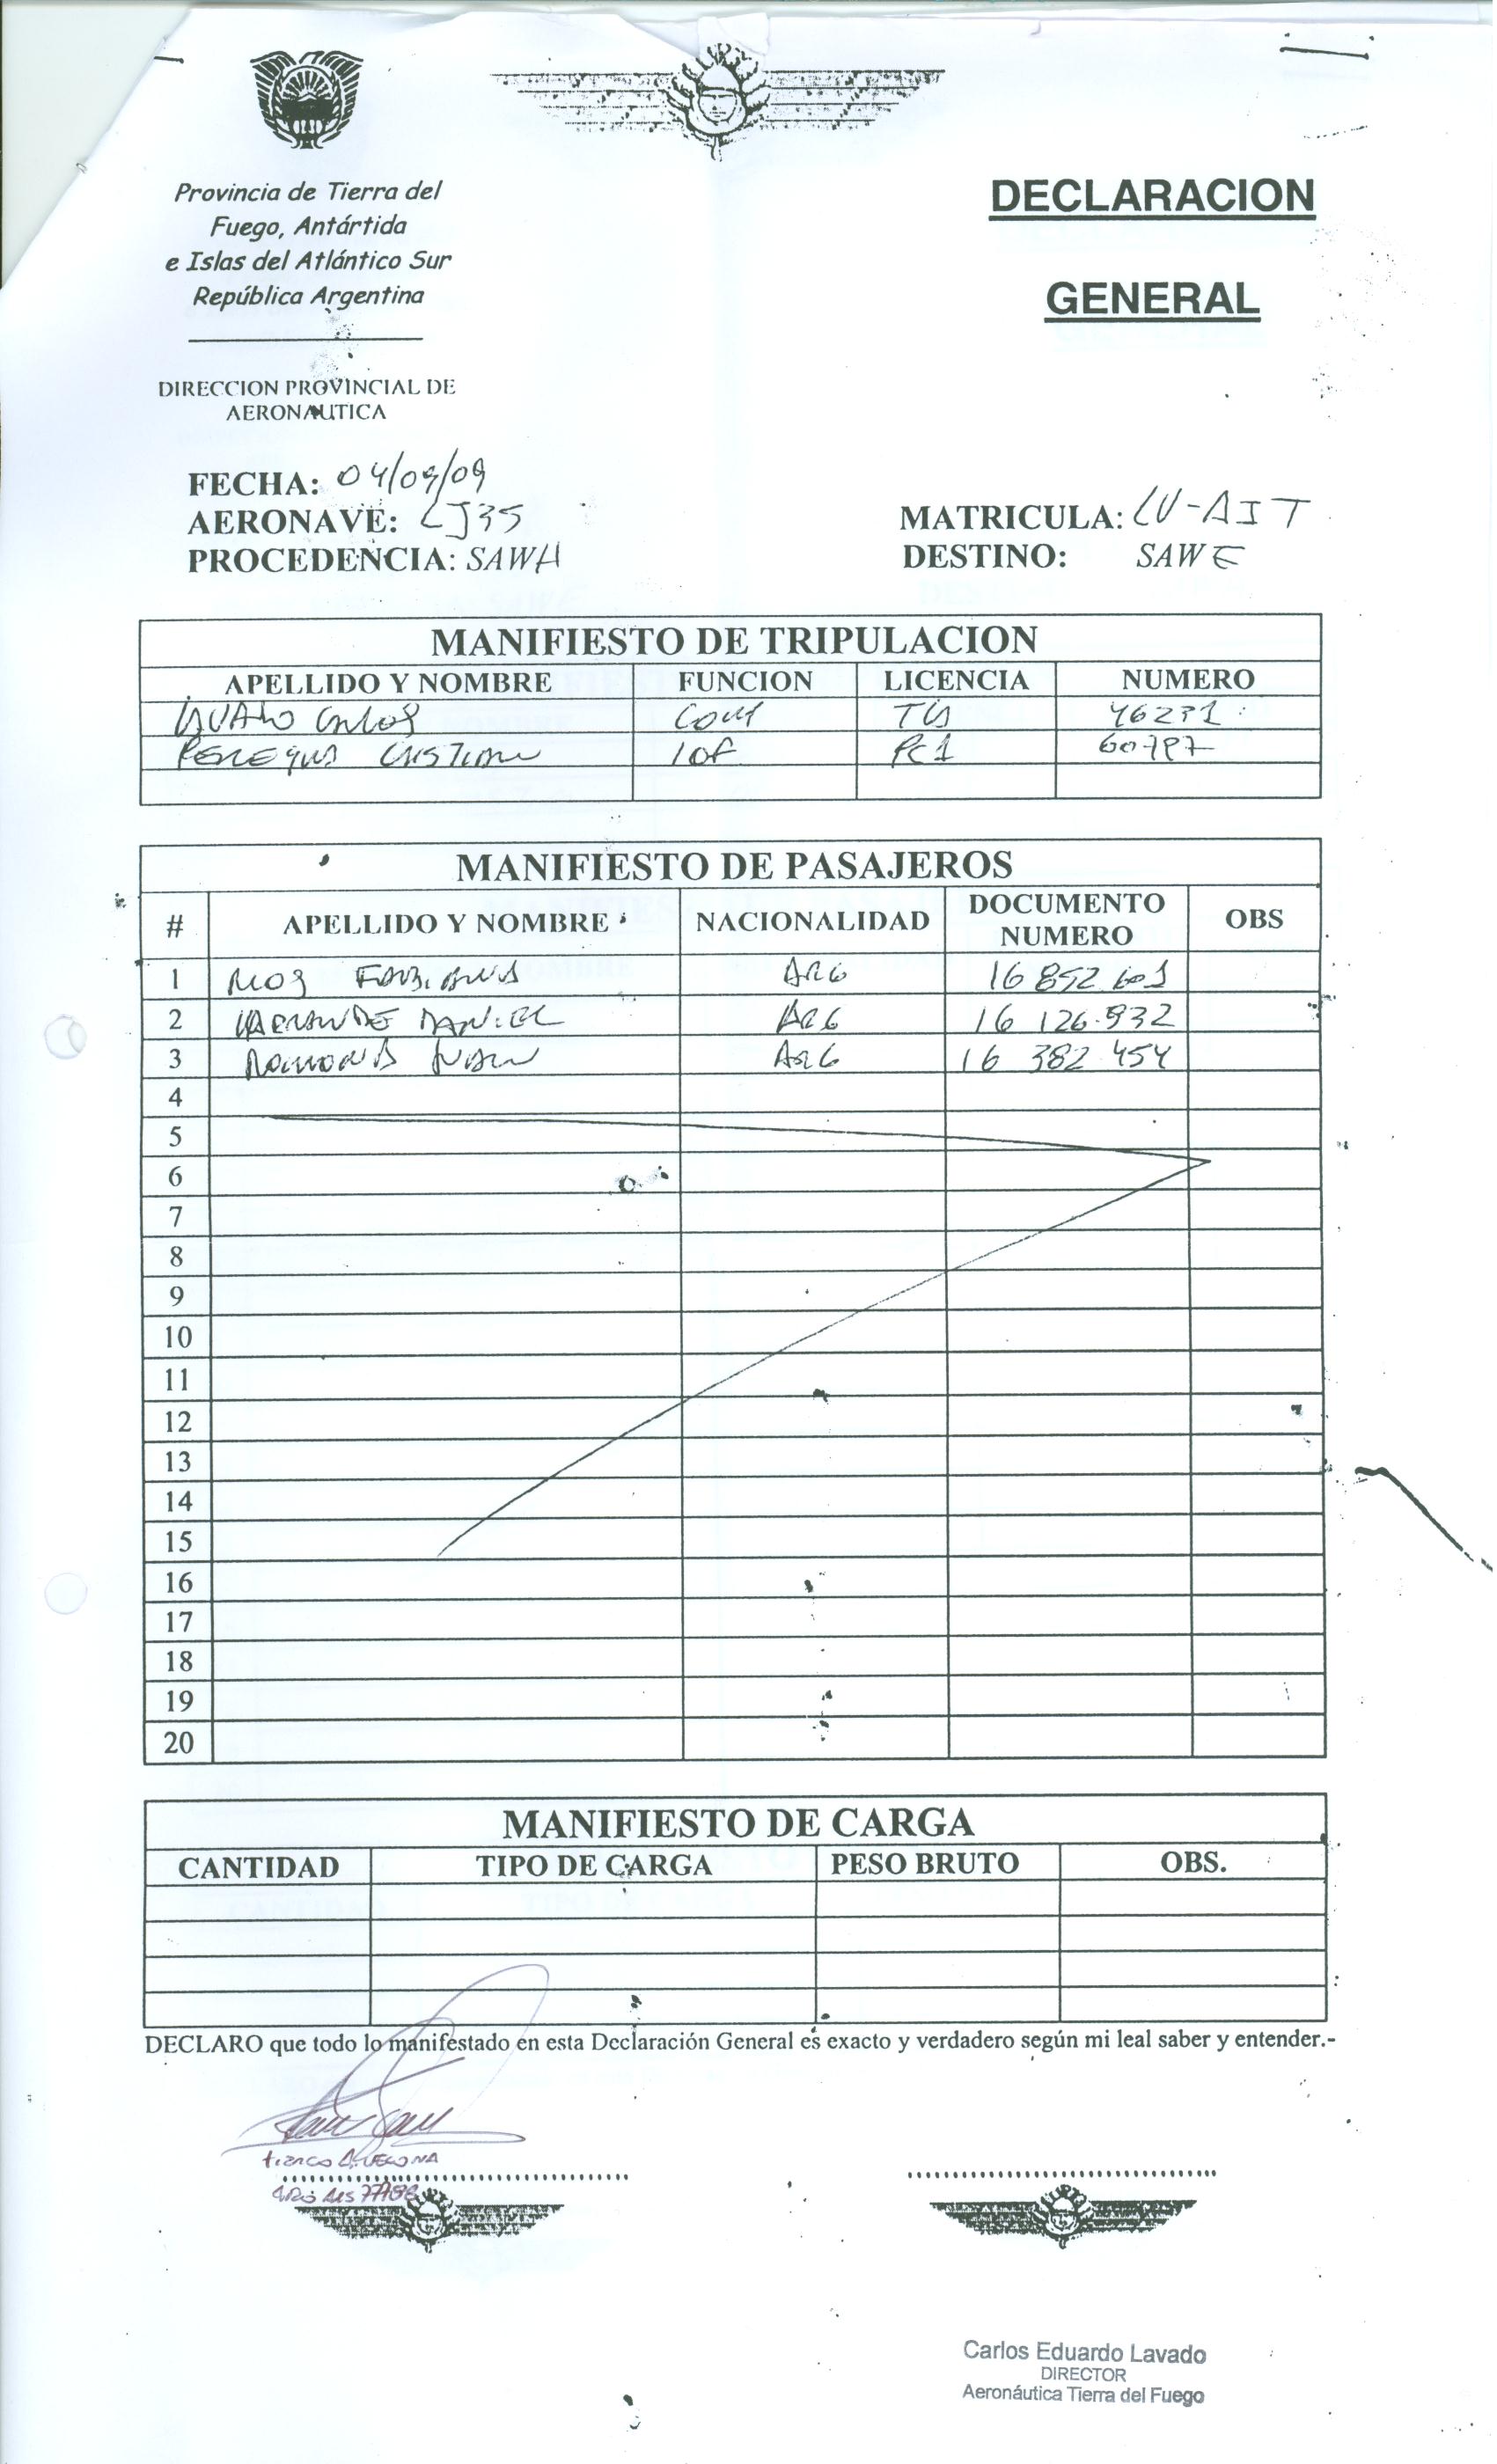 Provincia de Tierra del
Fuego, Antártida
e Islas del Atlántico Sur
República Argentina
DECLARACION
GENERAL
DIRECCION PROVINCIAL DE
AERONAUTICA
FECHA: 04/09/09
AERONAVE: LJ35
MATRICULA: LV-AIT
PROCEDENCIA: SAWH
DESTINO: SAWE
MANIFIESTO DE TRIPULACION
APELLIDO Y NOMBRE FUNCION LICENCIA NUMERO
Carlos 46231
60787
MANIFIESTO DE PASAJEROS
# APELLIDO Y NOMBRE NACIONALIDAD DOCUMENTO NUMERO OBS
1 RIOS FABIANA ARG 16 892 601
2 DANIEL ARG 16 126.932
3 JUAN ARG 16 382 454
4
5
6
7
8
9
10
11
12
13
14
15
16
17
18
19
20
MANIFIESTO DE CARGA
CANTIDAD TIPO DE CARGA PESO BRUTO OBS.
DECLARO que todo lo manifestado en esta Declaración General es exacto y verdadero según mi leal saber y entender.-
Carlos Eduardo Lavado
DIRECTOR
Aeronáutica Tierra del Fuego